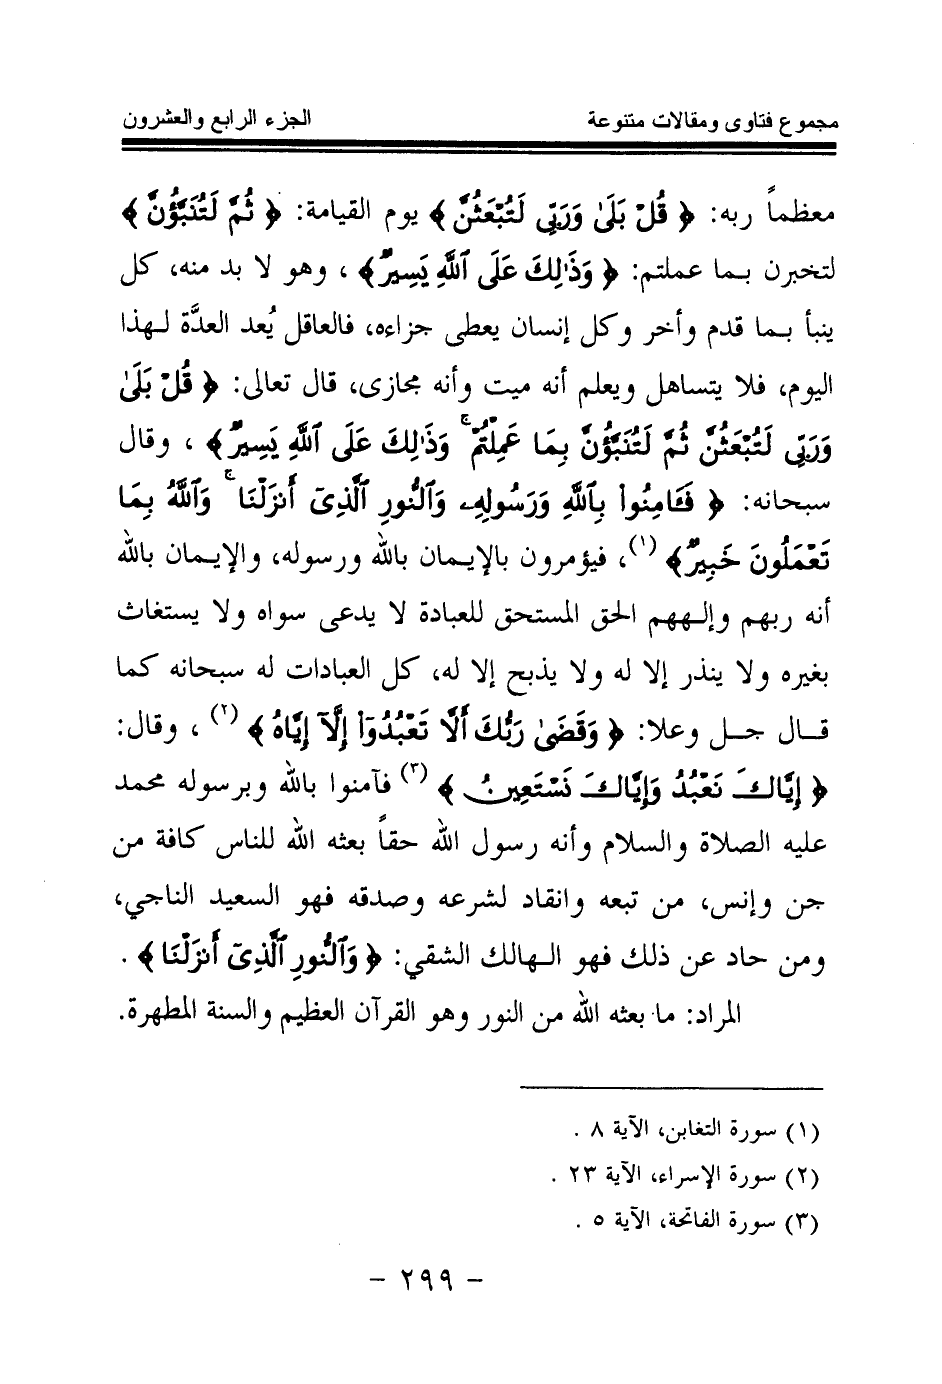 مجموع فتاوى ومقالات متنوعة الجزء الرابع والعشرون
معظماً ربه: ﴿ قُلْ بَلَىٰ وَرَبِّي لَتُبْعَثُنَّ ﴾ يوم القيامة: ﴿ ثُمَّ لَتُنَبَّؤُنَّ ﴾
لتخبرن بما عملتم: ﴿ وَذَٰلِكَ عَلَى ٱللَّهِ يَسِيرٌ ﴾ ، وهو لا بد منه، كل
ينبأ بما قدم وأخر وكل إنسان يعطى جزاءه، فالعاقل يُعد العدَّة لهذا
اليوم، فلا يتساهل ويعلم أنه ميت وأنه مجازى، قال تعالى: ﴿ قُلْ بَلَىٰ
وَرَبِّي لَتُبْعَثُنَّ ثُمَّ لَتُنَبَّؤُنَّ بِمَا عَمِلْتُمْ ۚ وَذَٰلِكَ عَلَى ٱللَّهِ يَسِيرٌ ﴾ ، وقال
سبحانه: ﴿ فَـَٔامِنُوا۟ بِٱللَّهِ وَرَسُولِهِۦ وَٱلنُّورِ ٱلَّذِىٓ أَنزَلْنَا ۚ وَٱللَّهُ بِمَا
تَعْمَلُونَ خَبِيرٌ ﴾ (١)، فيؤمرون بالإيمان بالله ورسوله، والإيمان بالله
أنه ربهم وإلههم الحق المستحق للعبادة لا يدعى سواه ولا يستغاث
بغيره ولا ينذر إلا له ولا يذبح إلا له، كل العبادات له سبحانه كما
قال جل وعلا: ﴿ وَقَضَىٰ رَبُّكَ أَلَّا تَعْبُدُوٓا۟ إِلَّآ إِيَّاهُ ﴾ (٢) ، وقال:
﴿ إِيَّاكَ نَعْبُدُ وَإِيَّاكَ نَسْتَعِينُ ﴾ (٣) فآمنوا بالله وبرسوله محمد
عليه الصلاة والسلام وأنه رسول الله حقاً بعثه الله للناس كافة من
جن وإنس، من تبعه وانقاد لشرعه وصدقه فهو السعيد الناجي،
ومن حاد عن ذلك فهو الهالك الشقي: ﴿ وَٱلنُّورِ ٱلَّذِىٓ أَنزَلْنَا ﴾ .
المراد: ما بعثه الله من النور وهو القرآن العظيم والسنة المطهرة.
(١) سورة التغابن، الآية ٨ .
(٢) سورة الإسراء، الآية ٢٣ .
(٣) سورة الفاتحة، الآية ٥ .
- ٢٩٩ -